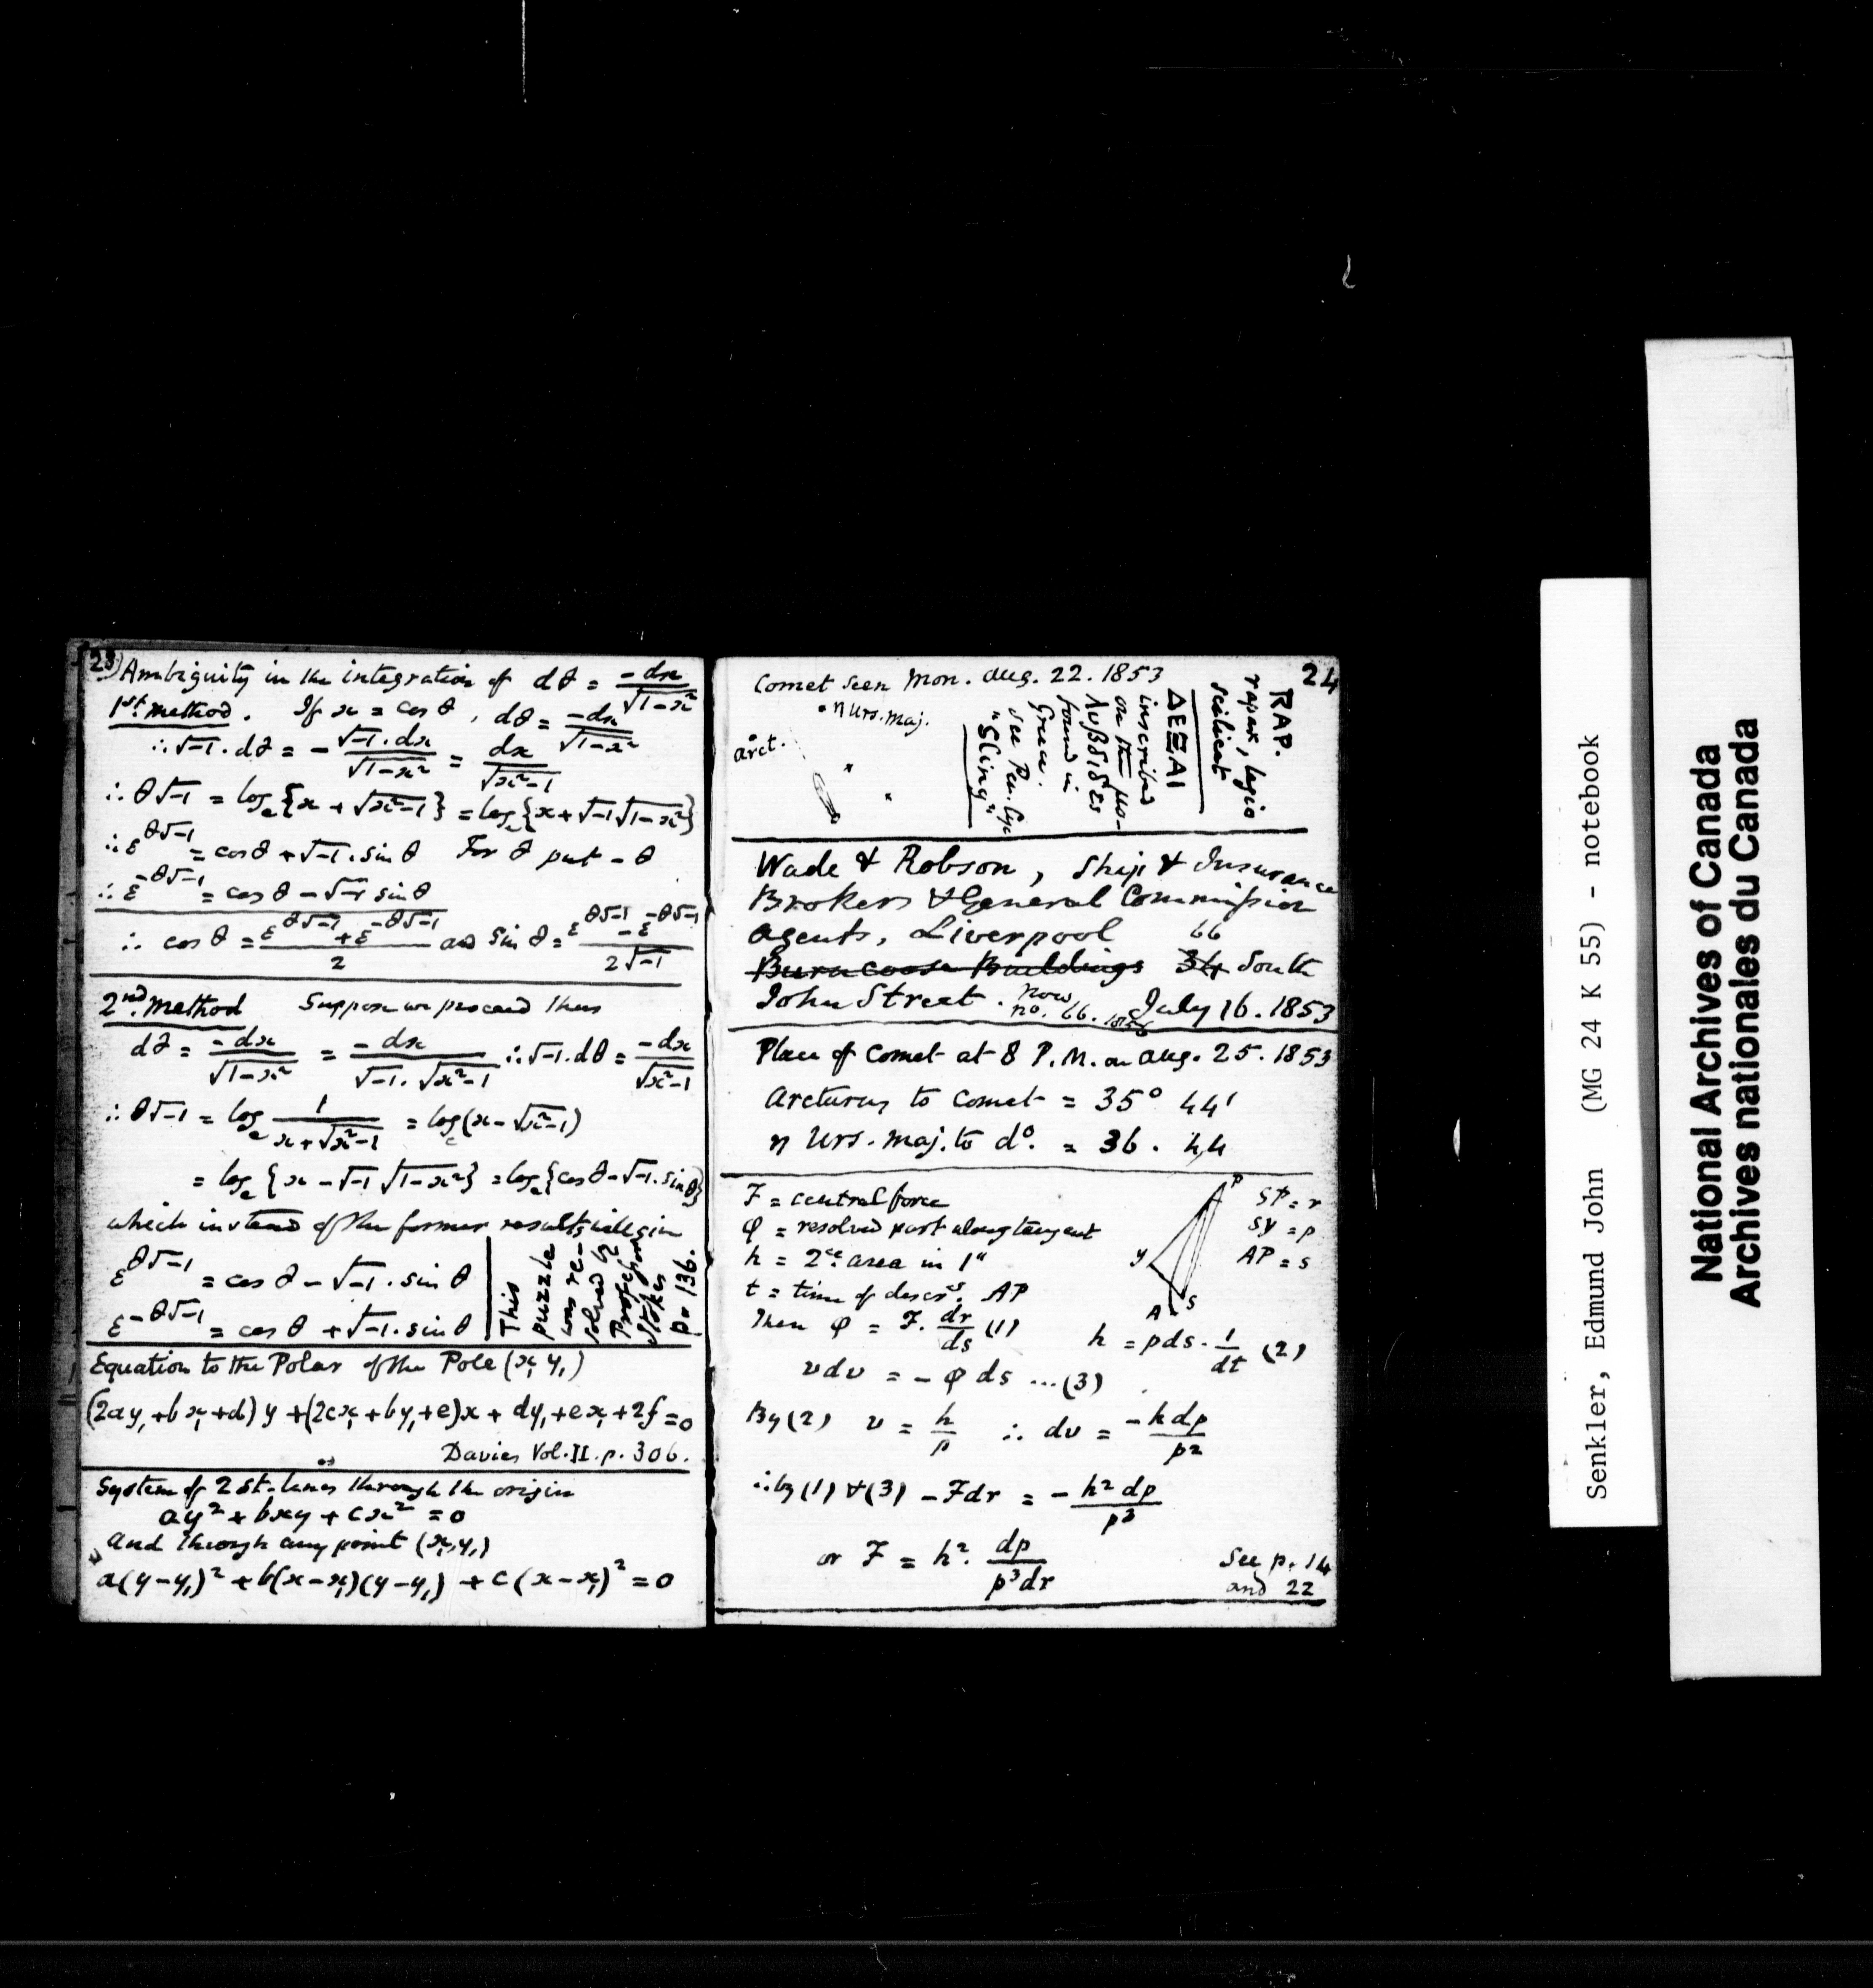 23) Ambiguity in the integration of dθ = -dx/√1-x²
1st. method. If x = cos θ, dθ = -dx/√1-x²
∴ √-1. dθ = - √-1. dx/√1-x² = dx/√x²-1
∴ θ√-1 = logₑ{x + √x²-1} = logₑ{x+√-1√1-x²}
∴ ε^θ√-1 = cos θ + √-1. sin θ For θ put - θ
∴ ε^-θ√-1 = cos θ - √-1 sin θ
∴ cos θ = ε^θ√-1 + ε^-θ√-1/2 and sin θ = ε^θ√-1 - ε^-θ√-1/2√-1
2nd. method Suppose we proceed thus
dθ = -dx/√1-x² = -dx/√-1. √x²-1 ∴ √-1. dθ = -dx/√x²-1
∴ θ√-1 = logₑ 1/x+√x²-1 = logₑ(x-√x²-1)
= logₑ{x-√-1√1-x²} = logₑ{cos θ-√-1. sin θ}
which instead of the former results will give
ε^θ√-1 = cos θ - √-1. sin θ
ε^-θ√-1 = cos θ + √-1. sin θ
This
puzzle
was re-
solved by
Professor
Stokes
p. 136.
Equation to the Polar of the Pole (x₁ y₁)
(2ay₁+bx₁+d)y+(2cx₁+by₁+e)x+dy₁+ex₁+2f=0
Davies Vol. II. p. 306.
System of 2 st. lines through the origin
ay²+bxy+cx²=0
And through any point (x₁,y₁)
a(y-y₁)²+b(x-x₁)(y-y₁)+c(x-x₁)²=0
24
Comet seen Mon. Aug. 22. 1853
η Urs. Maj.
Arct.
RAP.
rapax, legio
scilicet
ΔΕΞΑΙ
inscribed
on the μο-
λυβδιδες
found in
Greece.
See Pen. Cyc
"Sling"
Wade & Robson, Ship & Insurance
Brokers & General Commission
Agents, Liverpool 66
Buildings 34 South
John Street. now no. 66. July 16. 1853
Place of Comet at 8 P.M. on Aug. 25. 1853
Arcturus to Comet = 35° 44'
η Urs. Maj. to do. = 36. 44
F = central force
φ = resolved part along tangent
h = 2ce. area in 1"
t = time of descrn. AP
P
Y
A
S
SP = r
SY = p
AP = s
Then φ = F. dr/ds (1) h = pds. 1/dt (2)
vdv = - φ ds ...(3)
By (2) v = h/p ∴ dv = -hdp/p²
∴ by (1) & (3) -Fdr = - h² dp/p³
or F = h². dp/p³dr
See p. 14
and 22
Senkler, Edmund John (MG 24 K 55) - notebook
National Archives of Canada
Archives nationales du Canada